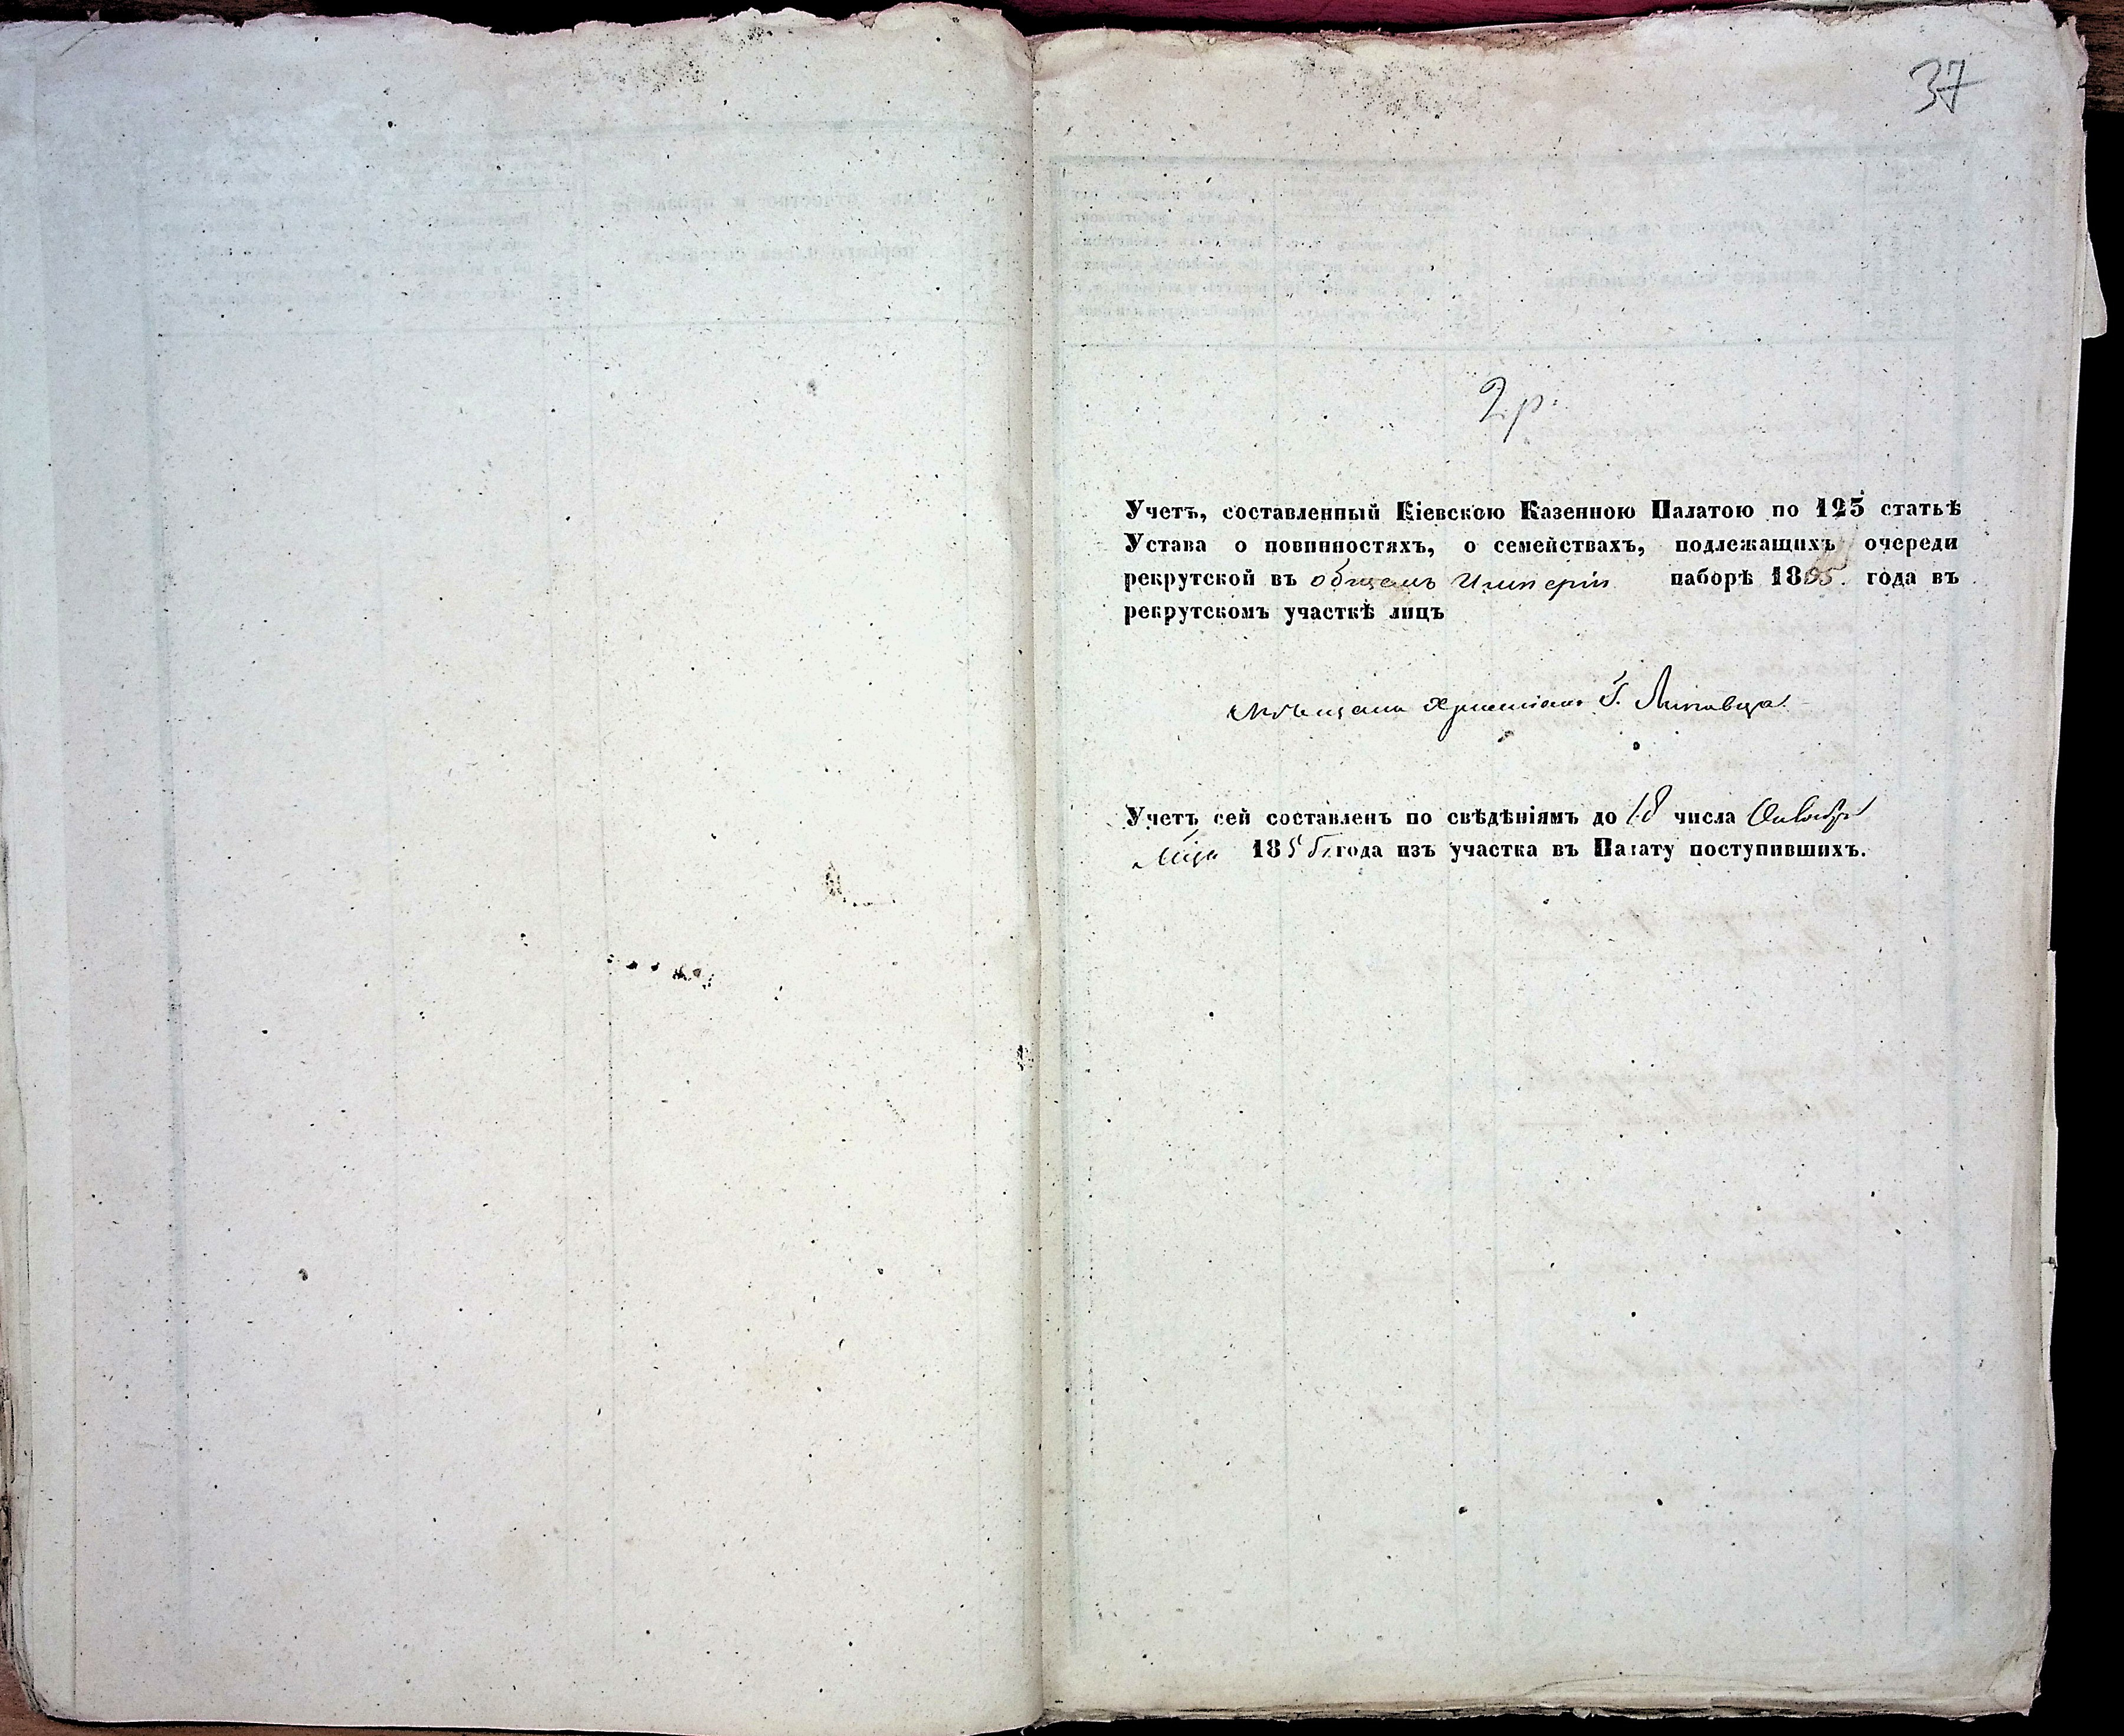 37
2 р.
Учетъ, составленный Кіевскою Казенною Палатою по 125 статьѣ
Устава о повинностяхъ, о семействахъ, подлежащихъ очереди
рекрутской въ общемъ Имперіи наборѣ 1855. года въ
рекрутскомъ участкѣ лицъ
Мѣщанъ Христіанъ Г. Липовца
Учетъ сей составленъ по свѣдѣніямъ до 18 числа Октября
Мца 1855 года изъ участка въ Палату поступившихъ.